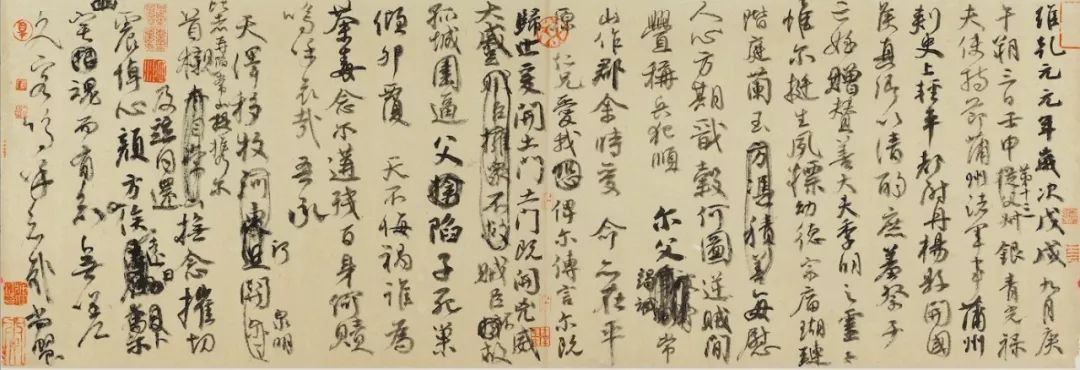 維乾元元年歲次戊戌九月庚
午朔三日壬申第十三從父銀青光祿
夫使持節蒲州諸軍事蒲州
刺史上輕車都尉丹楊縣開國
侯真卿以清酌庶羞祭于
亡姪贈贊善大夫季明之靈曰
惟爾挺生夙標幼德宗廟瑚璉
階庭蘭玉方憑積善每慰
人心方期戩穀何圖逆賊閒
釁稱兵犯順爾父竭誠常
山作郡余時受命亦在平
原仁兄愛我恐俾爾傳言爾既
歸止爰開土門土門既開凶威
大蹙賊臣擁眾不救賊臣不救
孤城圍逼父陷子死巢
傾卵覆天不悔禍誰為
荼毒念爾遘殘百身何贖
嗚呼哀哉吾承
天澤移牧河關泉明
比者再陷常山攜爾
首櫬及茲同還撫念摧切
震悼心顏方俟遠日卜爾
幽宅魂而有知無嗟
久客嗚呼哀哉尚饗